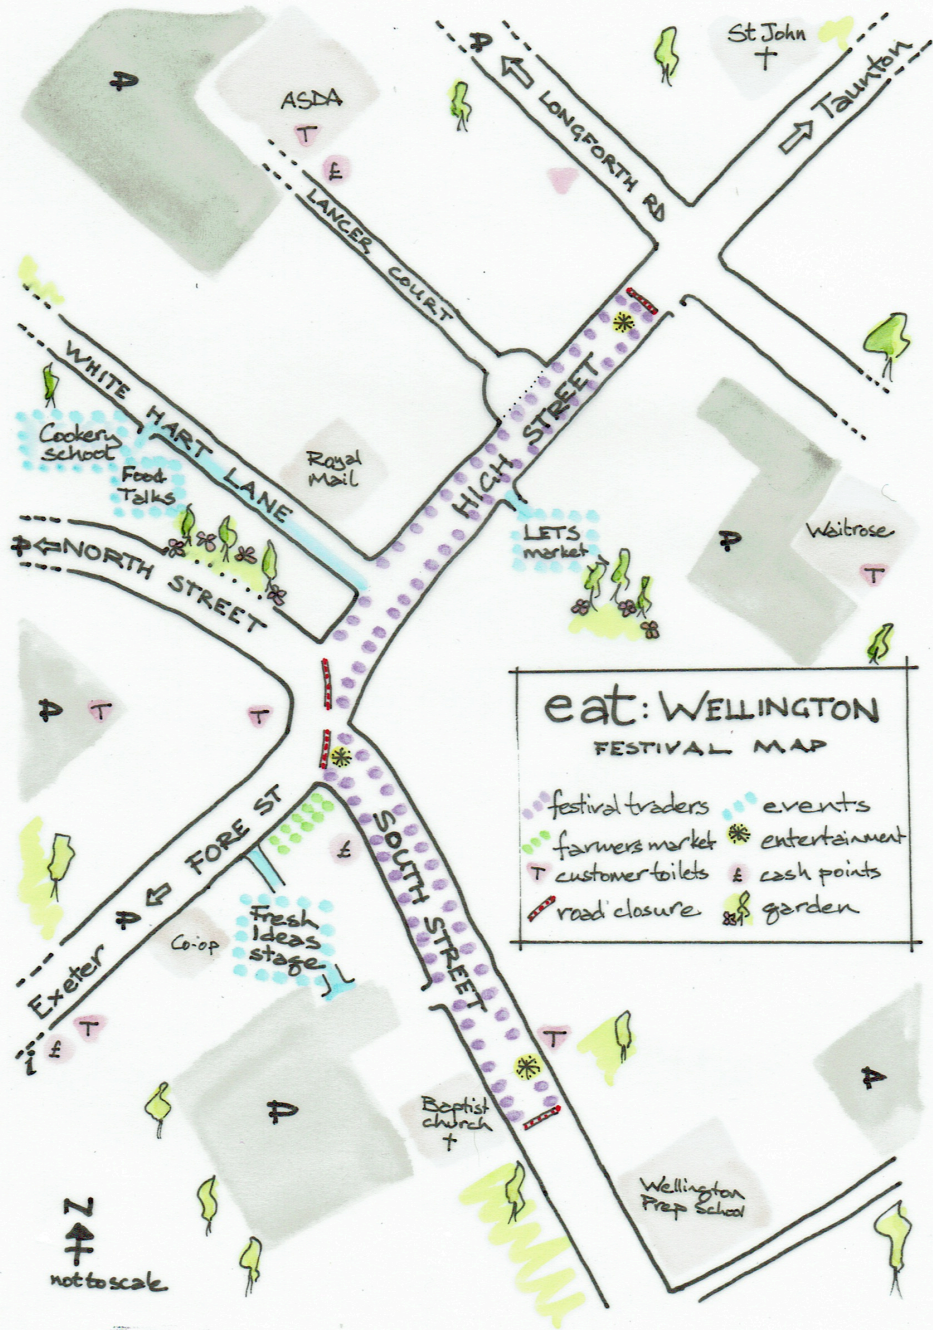 P
ASDA
T
£
P
LONGFORTH RD
St John
Taunton
LANCER COURT
WHITE HART LANE
HIGH STREET
Cookery
school
Food
Talks
Royal
Mail
LETS
market
P
Waitrose
T
P
NORTH STREET
P
T
T
eat: WELLINGTON
FESTIVAL MAP
festival traders
events
farmers market
entertainment
T
customer toilets
£
cash points
road closure
garden
FORE ST
SOUTH STREET
£
P
Exeter
Co-op
Fresh
Ideas
stage
T
£
i
T
P
P
Baptist
church
Wellington
Prep School
N
not to scale